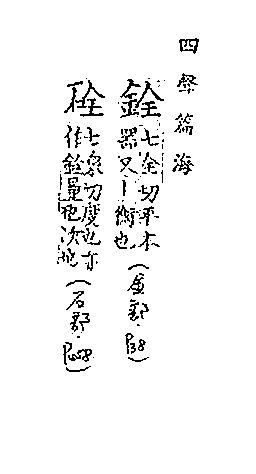 四聲篇海
銓七全切平木器又卜衡也(金部.P38)
硂七泉切度也亦作銓量也次也(石部.P058)